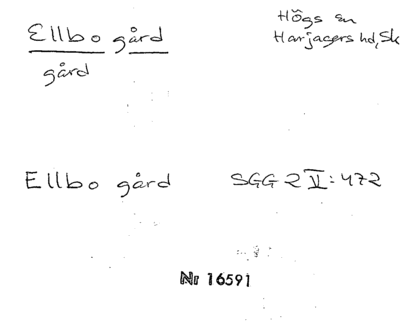 Ellbo gård
Högs sn
Harjagers hd, Sk
gård
Ellbo gård SGG 2 V: 472
Nr 16591